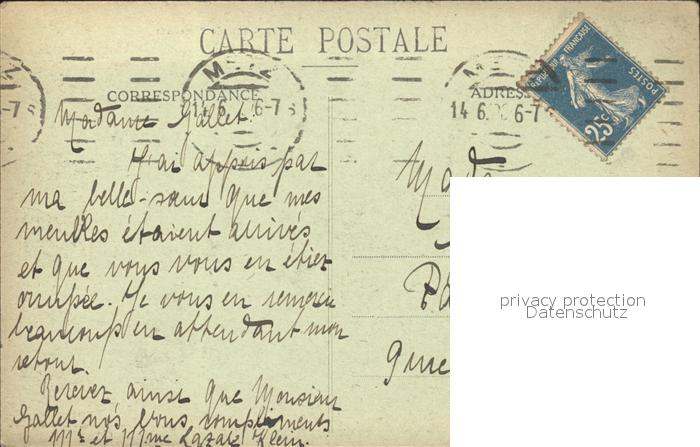 CARTE POSTALE
CORRESPONDANCE
METZ
14 6 6-7
ADRES
RÉPUBLIQUE FRANÇAISE
POSTES
25c
Madame Gallet.
J'ai appris par
ma belle-sœur que mes
meubles étaient arrivés
et que vous vous en étiez
occupée. Je vous en remercie
beaucoup en attendant mon
retour.
Recevez ainsi que Monsieur
Gallet nos bons compliments
Mr et Mme Klein.
privacy protection
Datenschutz